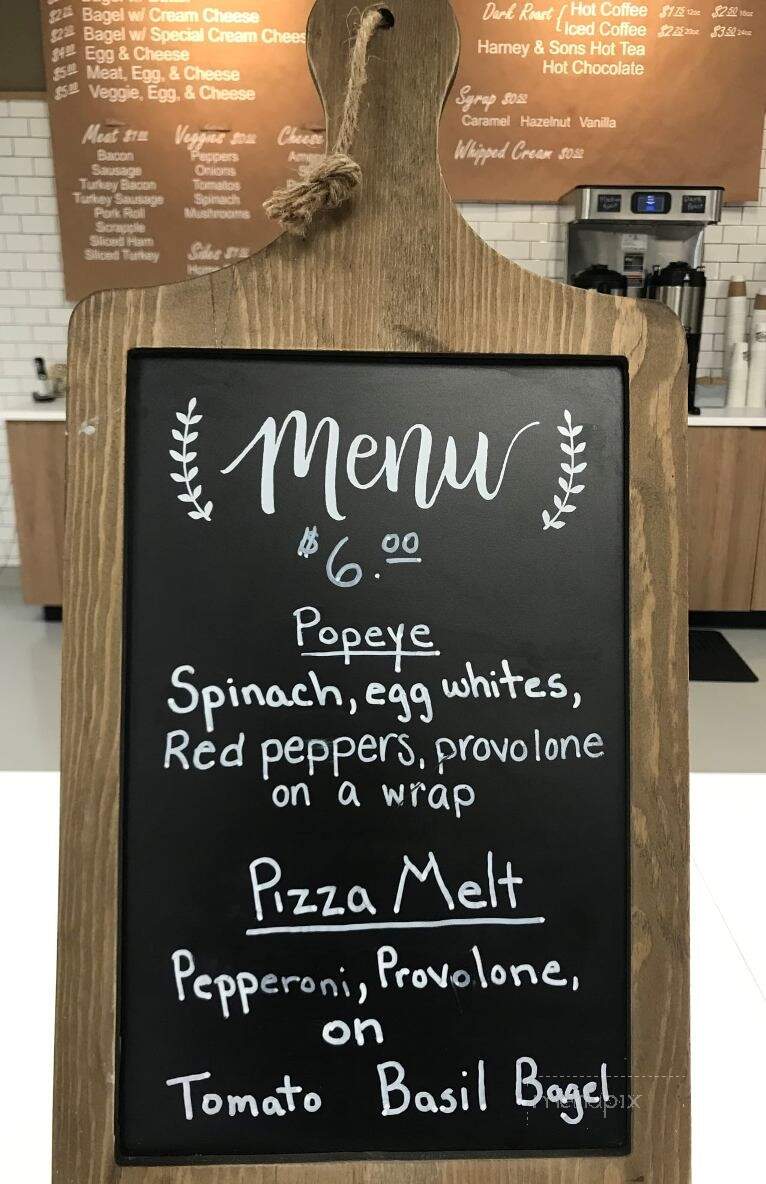 Bagel w/ Cream Cheese
Bagel w/ Special Cream Chees
Egg & Cheese
Meat, Egg, & Cheese
Veggie, Egg, & Cheese
Meat
Bacon
Sausage
Turkey Bacon
Turkey Sausage
Pork Roll
Scrapple
Sliced Ham
Sliced Turkey
Veggies
Peppers
Onions
Tomatos
Spinach
Mushrooms
Sides
Cheese
Dark Roast { Hot Coffee $1.75 12oz $2.50 16oz
Iced Coffee $2.75 20oz $3.50 24oz
Harney & Sons Hot Tea
Hot Chocolate
Syrup $0.50
Caramel Hazelnut Vanilla
Whipped Cream $0.50
Menu
$6.00
Popeye
Spinach, egg whites,
Red peppers, provolone
on a wrap
Pizza Melt
Pepperoni, Provolone,
on
Tomato Basil Bagel
menupix